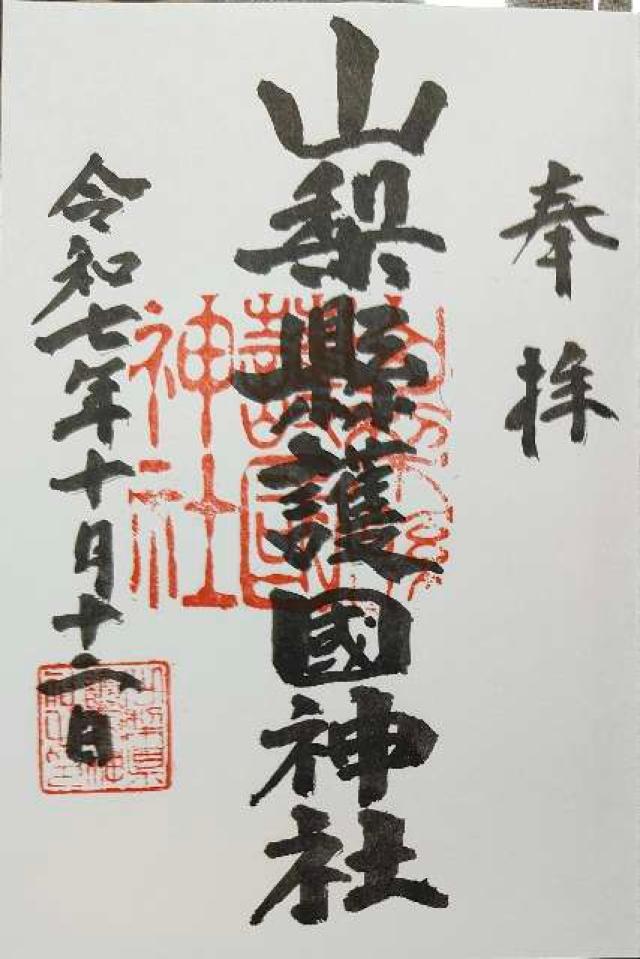 奉拝
山梨縣護國神社
令和七年十月十二日
神社